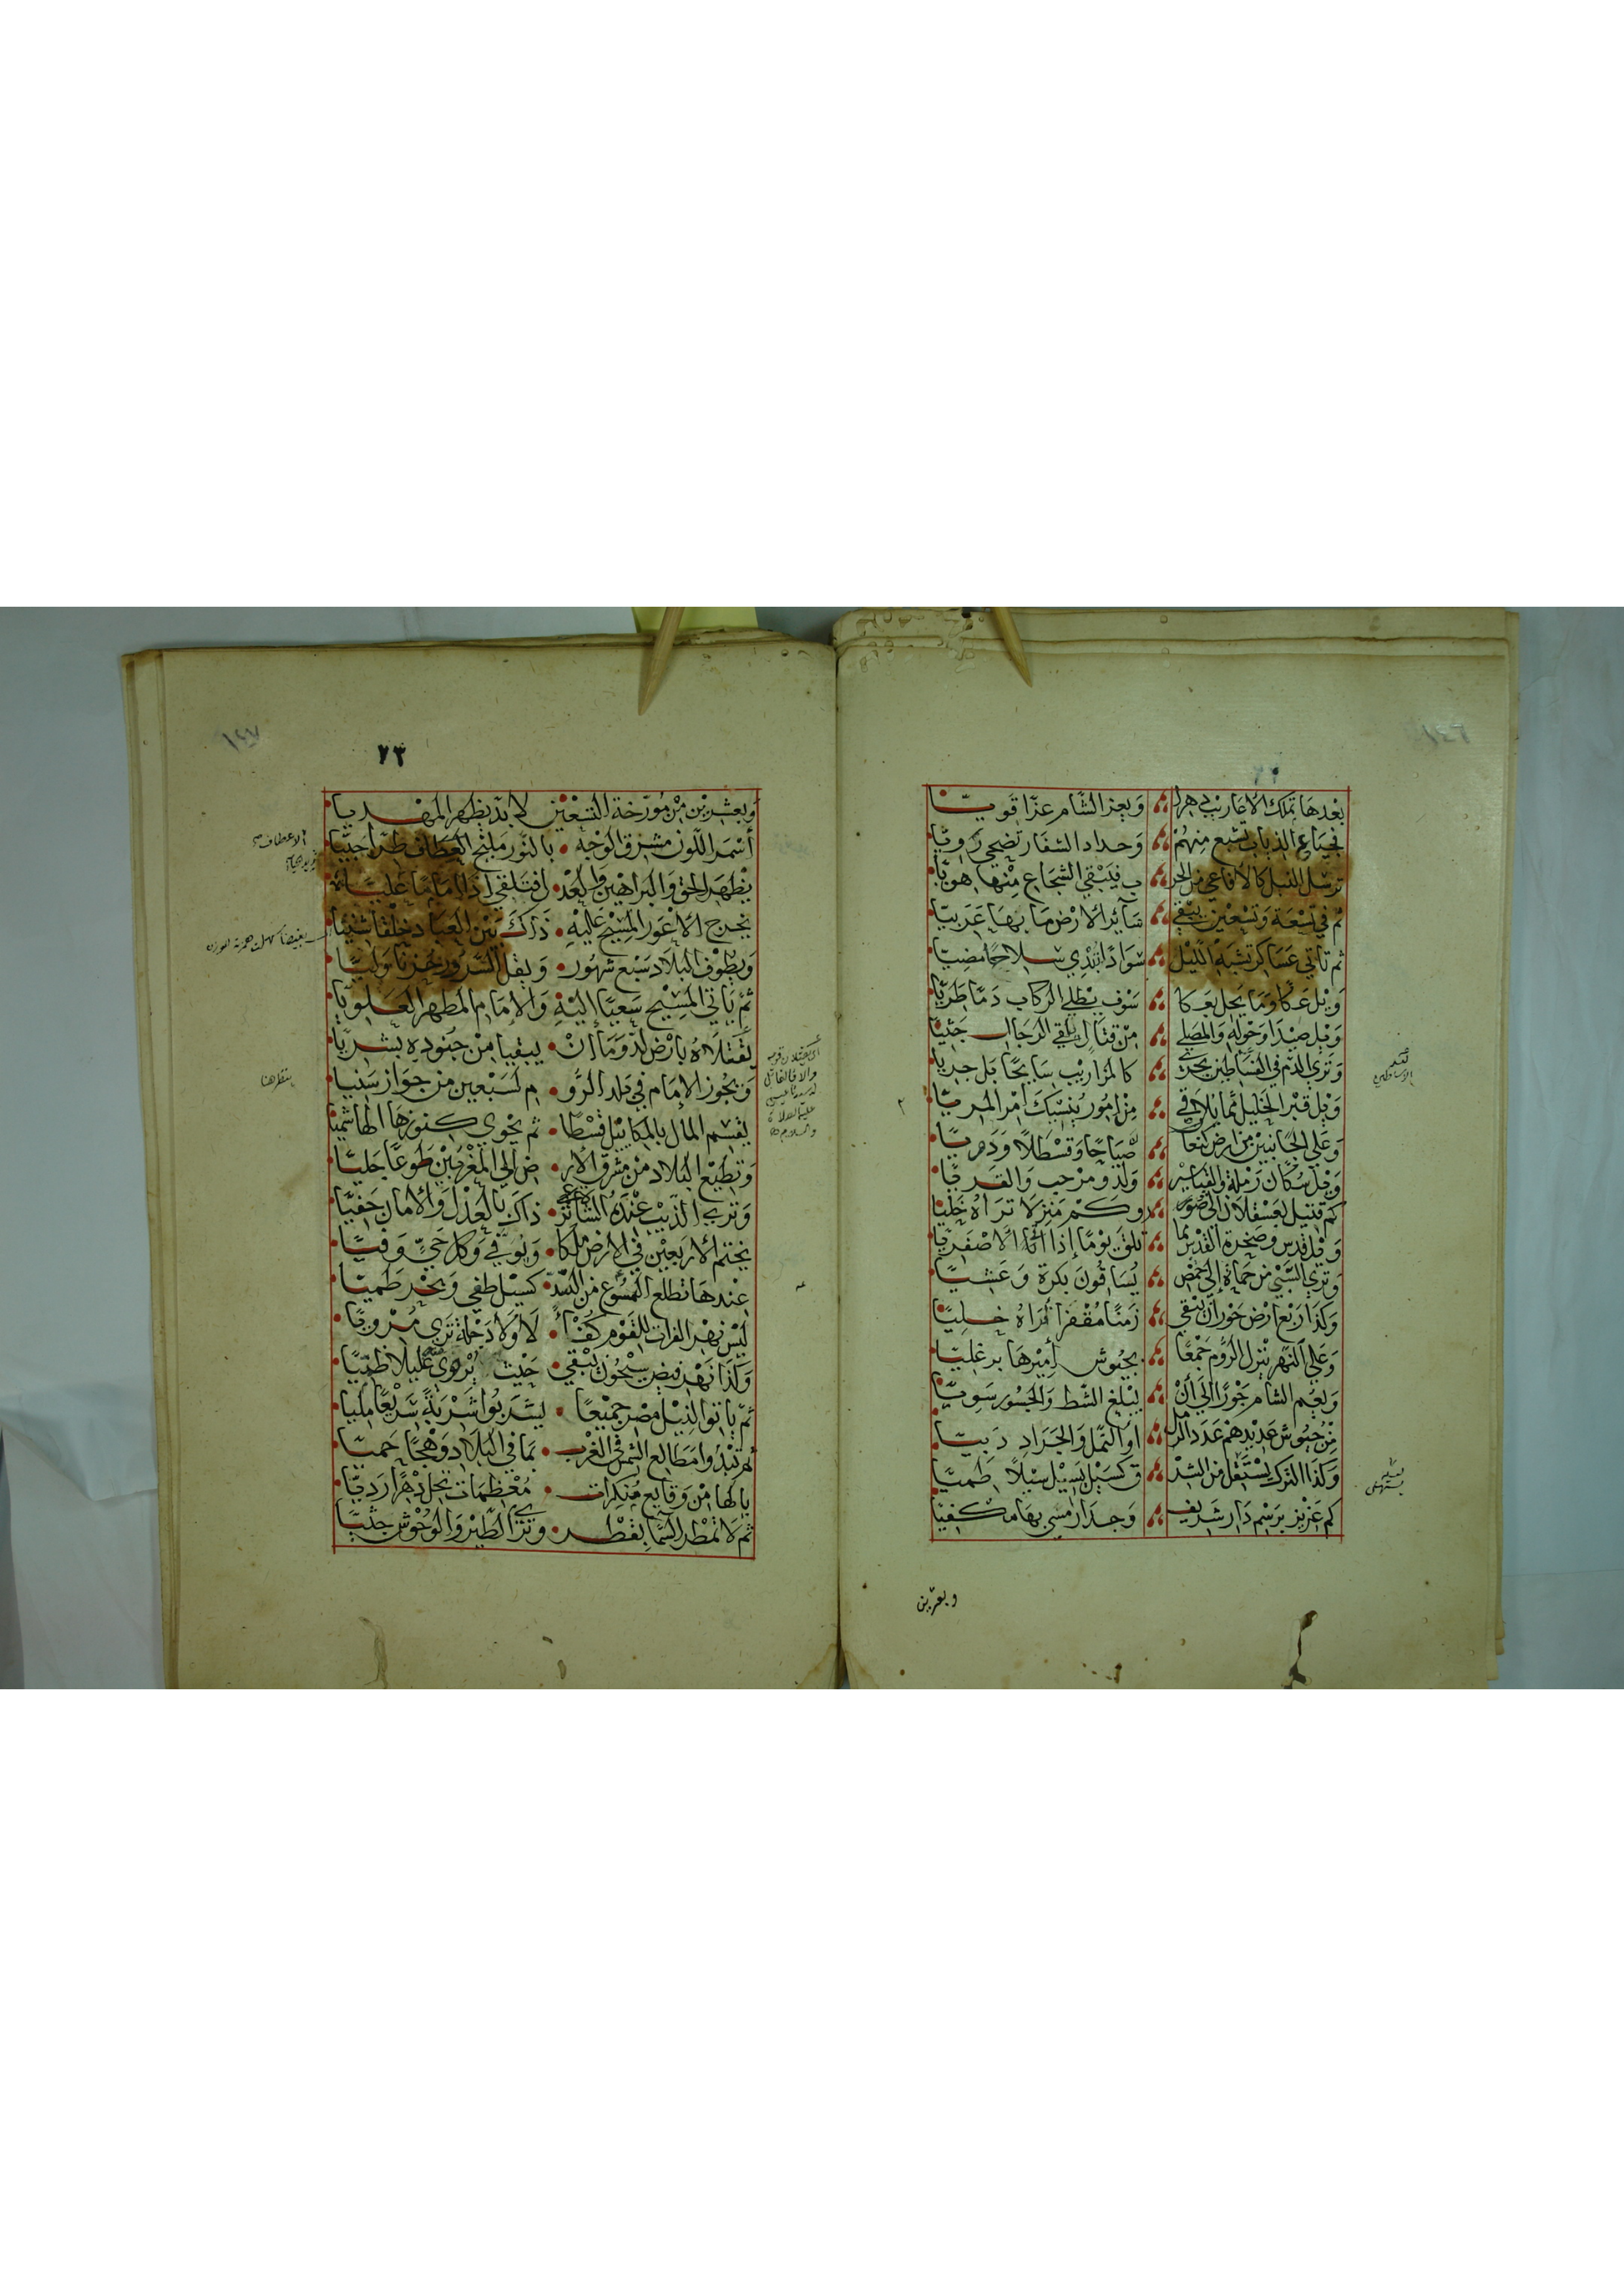 ١٤٦
بعدها تملك الاعاريب في هرا وبعز الشام عزا قويا
فجياع الذياب تشبع منهم وحداد الشفار تضحي رويا
ترسل النبل كالافاعي من الحر ب فيبقي الشجاع منها هويا
ثم في تسعة وتسعين يبقي سائر الارض ما بها عربيا
ثم تاتي عساكر تشبه الليل سوادا تبدي سلاحا مضيا
ويل عكا وما يحل بعكا سوف يطلي الركاب دما طريا
ويل صيدا وحوله والمصلي من قتال يلقي الرجال جثيا
وتري الدم في الفساطين يجري كالمزاريب سايحا بل جريا
ويل قبر الخليل مما يلاقي من امور ينسيك امر المريا
وعلي الجانبين من ارض كنعا صياحا وقسطلا ودويا
ويل سكان رملة والقياسر ولد ومرحب والقريا
كم قتيل بعسقلان الي صور وكم منزلا تراه خليا
ويل قدس وصخرة القدس مما تلق يوما إذا اتا الاصفريا
وتري السبي من حماة إلي حمص يساقون بكرة وعشيا
وكذا ربع ارض حوران يبقي زمنا مقفرا تراه خليا
وعلي النهر ينزل الروم جمعا بجيوش أميرها برغليا
ويعم الشام جورا الي أن يبلغ الشط والجسور سويا
من جيوش عديدهم عدد الرمل او النمل والجراد دبيا
وكذا الترك يستقل من الشر ق كسيل يسيل سيلا طميا
كم عزيز برسم دار شريف وجدار مسي بها مكفيا
وبعشرين
١٤٧
٢٣
وبعشرين من مورخة التسعين لابد يظهر المهديا
أسمر اللون مشرق الوجه بالنور مليح العطاف طرا جبيا
يظهر الحق والبراهين والعدل فتلقي إذا إماما عليا
يخرج الاعور المسيح عليه ذاك بين العباد خلقا شنيا
ويطوف البلاد سبع شهور ويقل السرور حزنا وليا
ثم ياتي المسيح سعيا إليه والإمام المطهر العلويا
يقتلاه بارض لد وما ان يبقيا من جنوده بشريا
ويجوز الإمام في بلد الرو م لسبعين من جواز سنيا
يقسم المال بالمكاييل قسطا ثم يحوي كنوزها الهاشميا
وتطيع البلاد من مشرق الار ض الي المغربين طوعا جليا
وتري الذيب عنده الشاة ترعي ذاك بالعدل والامان حفيا
يختم الاربعين في الارض ملكا ويوفي وكل حي وفيا
عندها تطلع الهسوع من السد كسيل طفي وبحر طميا
ليس نهر الفرات للقوم كفأ لا ولا دجلة تري مرويا
وكذا نهر فيض سيحون يبقي حيث يروي غليلا ظميا
ثم ياتوا لنيل مصر جميعا ليشربوا شربة شريعا مليا
ثم تبدوا مطالع الشمس في الغرب بما في البلاد وهجا حميا
يا لها من وقايع منكرات معظمات تحل دهرا رديا
ثم لا تمطر السما بقطر وتري الطير والوحوش جثيا
ينظر هنا